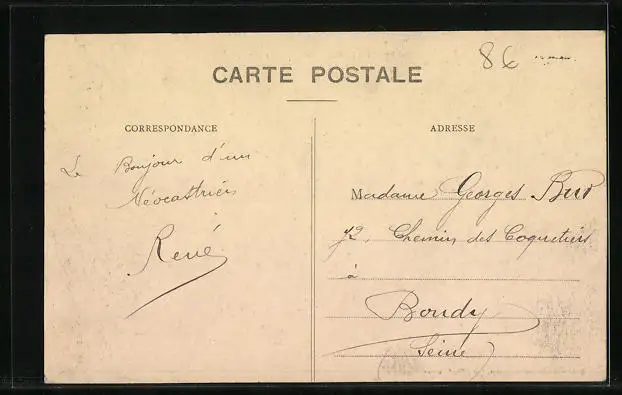 86
CARTE POSTALE
CORRESPONDANCE
ADRESSE
Le Bonjour d'un
Néocastrien
René
Madame Georges
72, Chemin des Coquetiers
à
Bondy
Seine